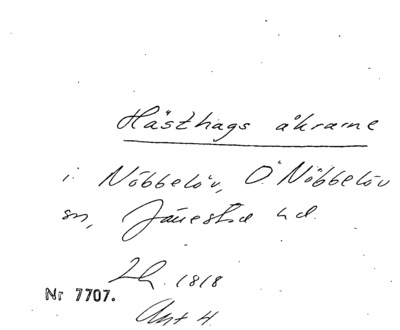 Hästhags åkrarne
i Nöbbelöv, Ö. Nöbbelöv
sn, Järrestad hd.
1818
Nr 7707.
Ant 4